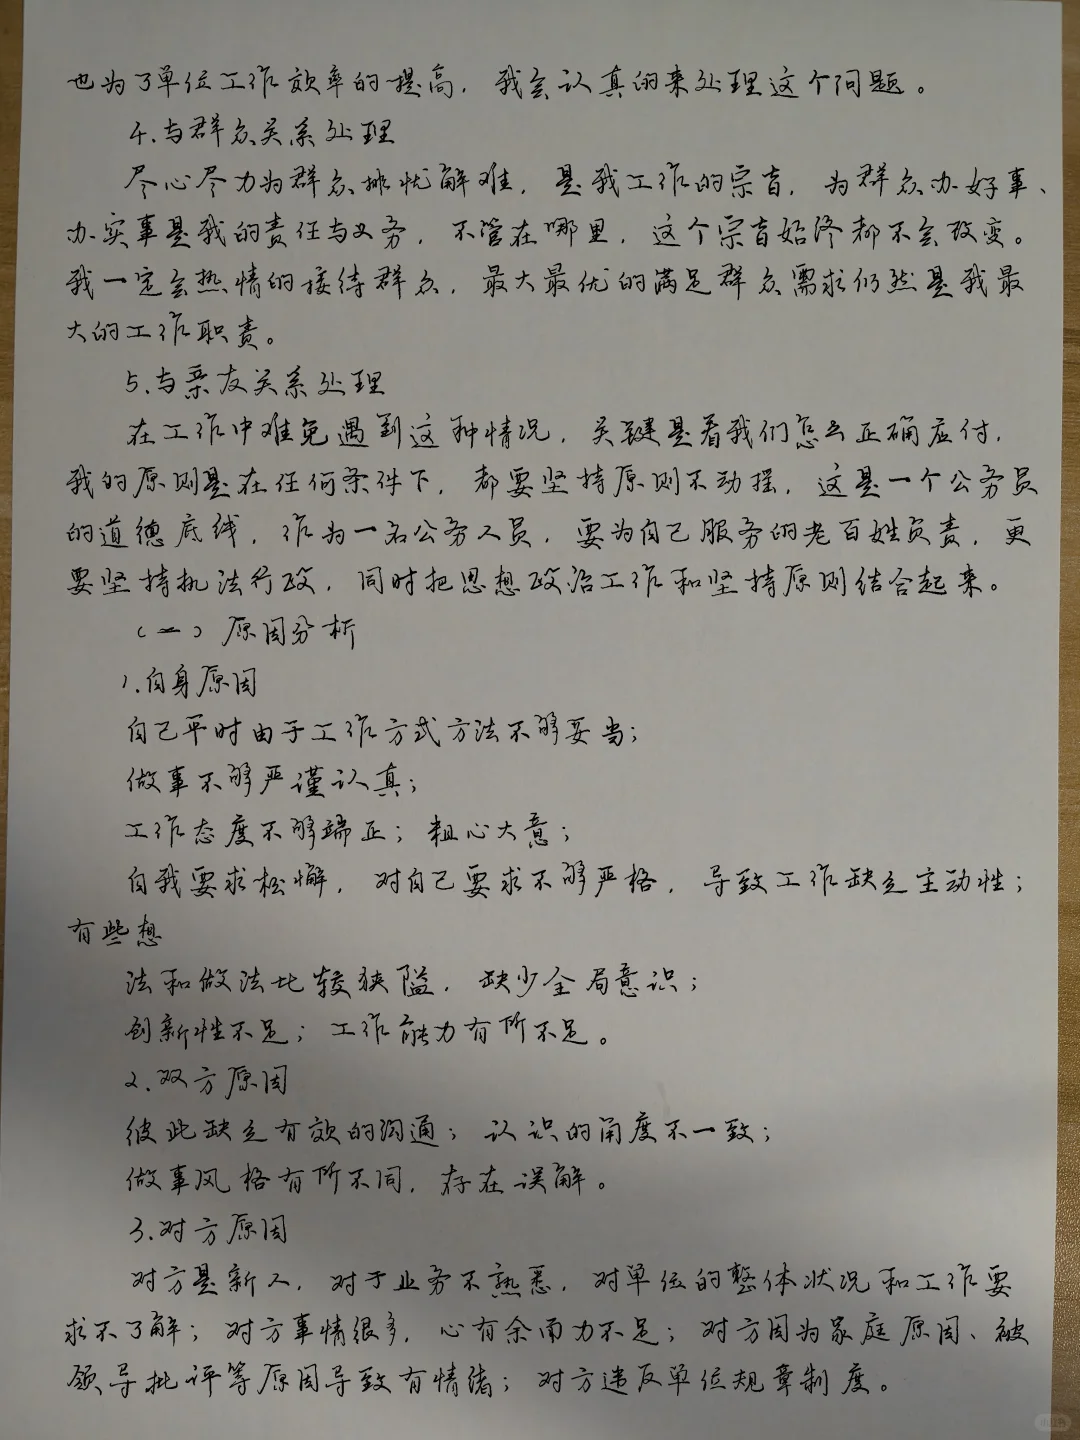 也为了单位工作效率的提高，我会认真的来处理这个问题。
4.与群众关系处理
尽心尽力为群众排忧解难，是我工作的宗旨，为群众办好事、
办实事是我的责任与义务，不管在哪里，这个宗旨始终都不会改变。
我一定会热情的接待群众，最大最优的满足群众需求仍然是我最
大的工作职责。
5.与亲友关系处理
在工作中难免遇到这种情况，关键是看我们怎么正确应付，
我的原则是在任何条件下，都要坚持原则不动摇，这是一个公务员
的道德底线，作为一名公务人员，要为自己服务的老百姓负责，更
要坚持执法行政，同时把思想政治工作和坚持原则结合起来。
（一）原因分析
1.自身原因
自己平时由于工作方式方法不够妥当；
做事不够严谨认真；
工作态度不够端正；粗心大意；
自我要求松懈，对自己要求不够严格，导致工作缺乏主动性；
有些想
法和做法比较狭隘，缺少全局意识；
创新性不足；工作能力有所不足。
2.双方原因
彼此缺乏有效的沟通；认识的角度不一致；
做事风格有所不同，存在误解。
3.对方原因
对方是新人，对于业务不熟悉，对单位的整体状况和工作要
求不了解；对方事情很多，心有余而力不足；对方因为家庭原因、被
领导批评等原因导致有情绪；对方违反单位规章制度。
小红书